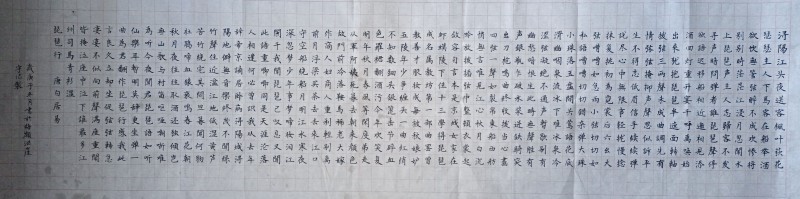 潯陽江頭夜送客楓葉荻花
瑟瑟主人下馬客在船舉酒
欲飲無管弦醉不成歡慘將
別別時茫茫江浸月忽聞水
上琵琶聲主人忘歸客不發
尋聲暗問彈者誰琵琶聲停
欲語遲移船相近邀相見添
酒回燈重開宴千呼萬喚始
出來猶抱琵琶半遮面轉軸
撥弦三兩聲未成曲調先有
情弦弦掩抑聲聲思似訴平
生不得志低眉信手續續彈
說盡心中無限事輕攏慢撚
抹復挑初為霓裳後六么大
弦嘈嘈如急雨小弦切切如
私語嘈嘈切切錯雜彈大珠
小珠落玉盤間關鶯語花底
滑幽咽泉流冰下難冰泉冷
澀弦凝絕凝絕不通聲暫歇別有
幽愁暗恨生此時無聲勝有
聲銀瓶乍破水漿迸鐵騎突
出刀槍鳴曲終收撥當心畫
四弦一聲如裂帛東船西舫
悄無言唯見江心秋月白沉
吟放撥插弦中整頓衣裳起
斂容自言本是京城女家在
蝦蟆陵下住十三學得琵琶
成名屬教坊第一部曲罷曾
教善才服妝成每被秋娘妒
五陵年少爭纏頭一曲紅綃
不知數鈿頭銀篦擊節碎血
色羅裙翻酒污今年歡笑復
明年秋月春風等閒度弟走
從軍阿姨死暮去朝來顏色
故門前冷落鞍馬稀老大嫁
作商人婦商人重利輕別離
前月浮梁買茶去去來江口
守空船繞船月明江水寒夜
深忽夢少年事夢啼妝淚紅
闌干我聞琵琶已嘆息又聞
此語重唧唧同是天涯淪落
人相逢何必曾相識我從去年
辭帝京謫居臥病潯陽城潯
陽地僻無音樂終歲不聞絲
竹聲住近湓江地低濕黃蘆
苦竹繞宅生其間旦暮聞何物
杜鵑啼血猿哀鳴春江花朝
秋月夜往往取酒還獨傾豈
無山歌與村笛嘔啞嘲哳難
為聽今夜聞君琵琶語如聽
仙樂耳暫明莫辭更坐彈一
曲為君翻作琵琶行感我此
言良久立卻坐促弦弦轉急
淒淒不似向前聲滿座重聞
皆掩泣座中泣下誰最多江
州司馬青衫濕
琵琶行 唐白居易